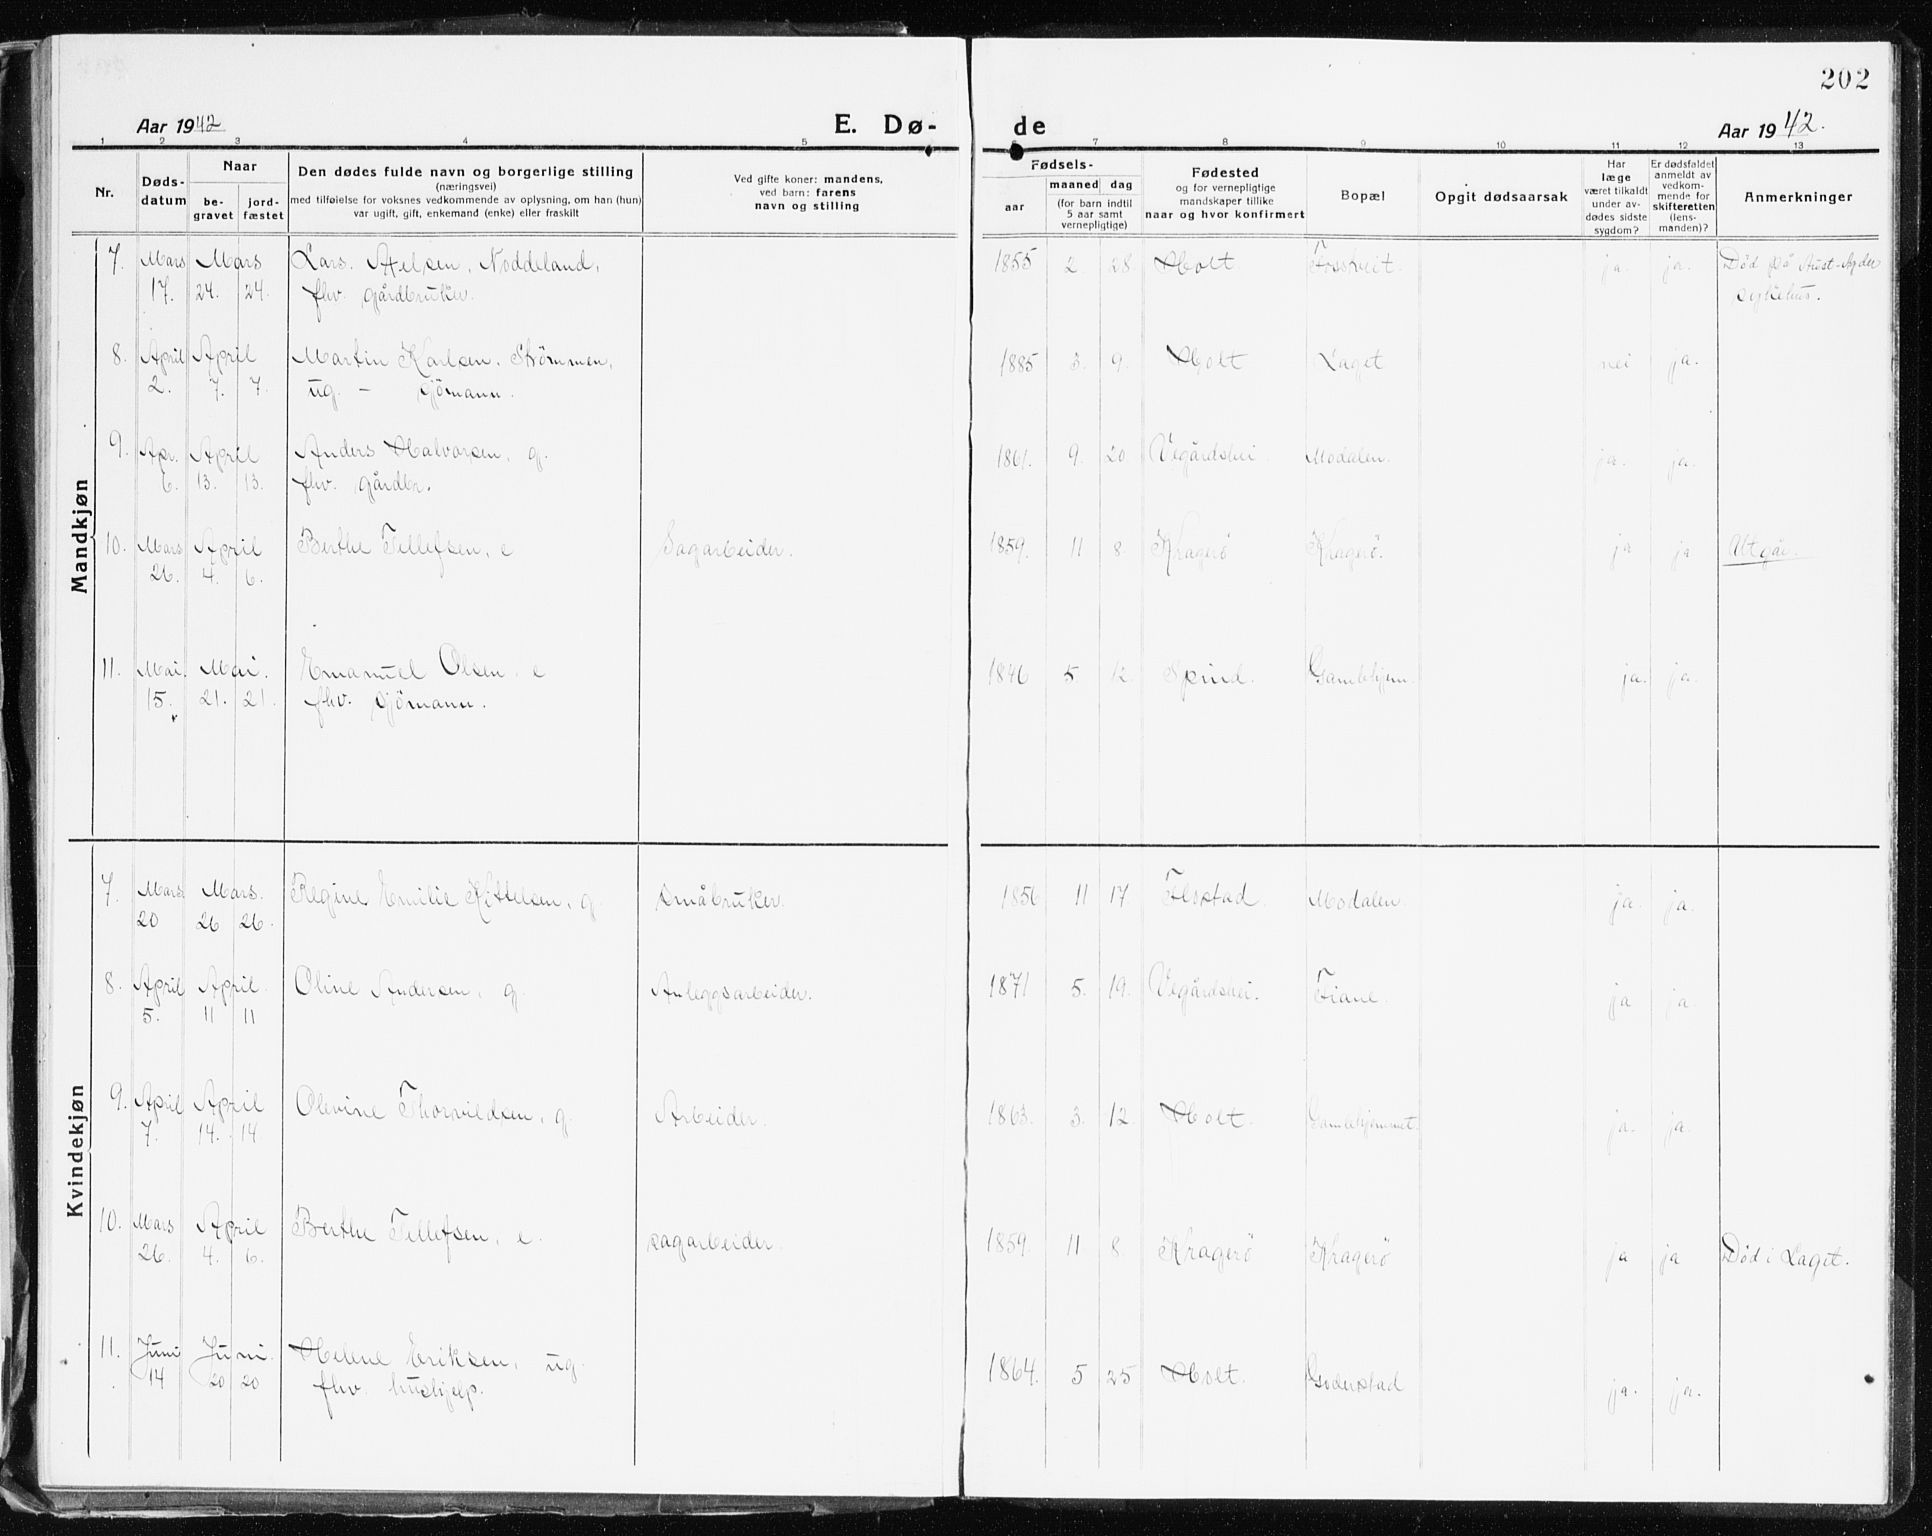 202
Aar 1942
E. Dø-
de
Aar 1942.
1 2 3 4 5 7 8 9 10 11 12 13
Nr.
Døds-
datum
Naar
be-
gravet
jord-
fæstet
Den dødes fulde navn og borgerlige stilling
(næringsvei)
med tilføielse for voksnes vedkommende av oplysning, om han (hun)
var ugift, gift, enkemand (enke) eller fraskilt
Ved gifte koner: mandens,
ved barn: farens
navn og stilling
Fødsels-
aar
maaned dag
(for barn indtil
5 aar samt
vernepligtige)
Fødested
og for vernepligtige
mandskaper tillike
naar og hvor konfirmert
Bopæl
Opgit dødsaarsak
Har
læge
været tilkaldt
under av-
dødes sidste
sygdom?
Er dødsfaldet
anmeldt av
vedkom-
mende for
skifteretten
(lens-
manden)?
Anmerkninger
Mandkjøn
7. Mars Mars Lars Noddeland, 1855 2. 28 Holt ja. ja. Død på Aust-Agder
17. 24. 24. fhv. gårdbruker. sykehus.
8. April April Martin Karlsen, Strømmen, 1885 3. 9. Holt Laget nei ja.
2. 7. 7. ug. — sjømann.
9. Apr. April Anders Halvorsen, g. 1861. 9. 20. Vegårdshei. Modalen. ja. ja.
6. 13. 13. fhv. gårdbr.
10. Mars April Berthe Tellefsen, e Sagarbeider. 1859. 11 8. Kragerö Kragerö. ja ja Utgår.
26. 4. 6.
11. Mai. Mai. Emanuel Olsen, e 1846 5. 12. Spind. Gamlehjem. ja. ja.
15. 21. 21. fhv. sjömann.
Kvindekjøn
7. Mars Mars. Regine Emilie Kittelsen, g. småbruker. 1856 11 17 Flostad. Modalen. ja. ja.
20 26 26.
8. April April. Oline Andersen, g. Anleggsarbeider. 1871 5. 19. Vegårdshei. Fiane. ja ja.
5. 11 11
9. April April Olevine Thorvildsen, g. Arbeider. 1863. 3. 12. Holt. Gamlehjemmet. ja. ja.
7. 14. 14
10. Mars April Berthe Tellefsen, e. sagarbeider. 1859. 11 8. Kragerö Kragerö ja ja Død i Laget.
26. 4. 6.
11. Juni Juni. Helene Eriksen, ug. 1864. 5 25 Holt. Goderstad ja. ja.
14 20 20 fhv. hushjelp.